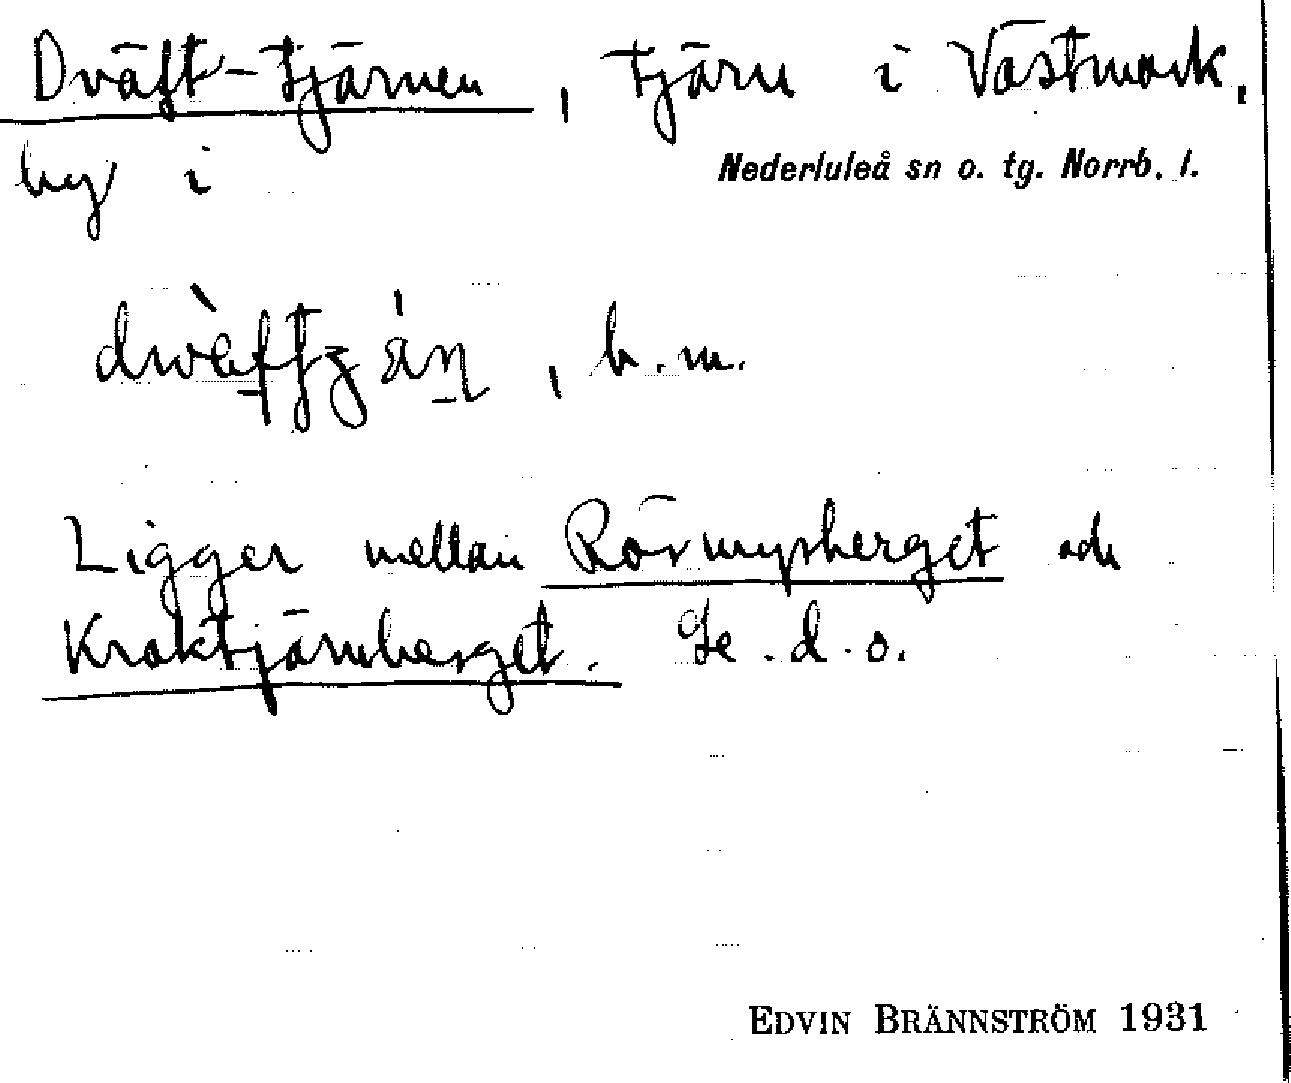 Dväft-tjärnen, tjärn i Västmark,
by i Nederluleå sn o. tg. Norrb. l.
, b. m.
Ligger mellan Rörmyrberget och
Kraktjärnberget. Se d. o.
EDVIN BRÄNNSTRÖM 1931